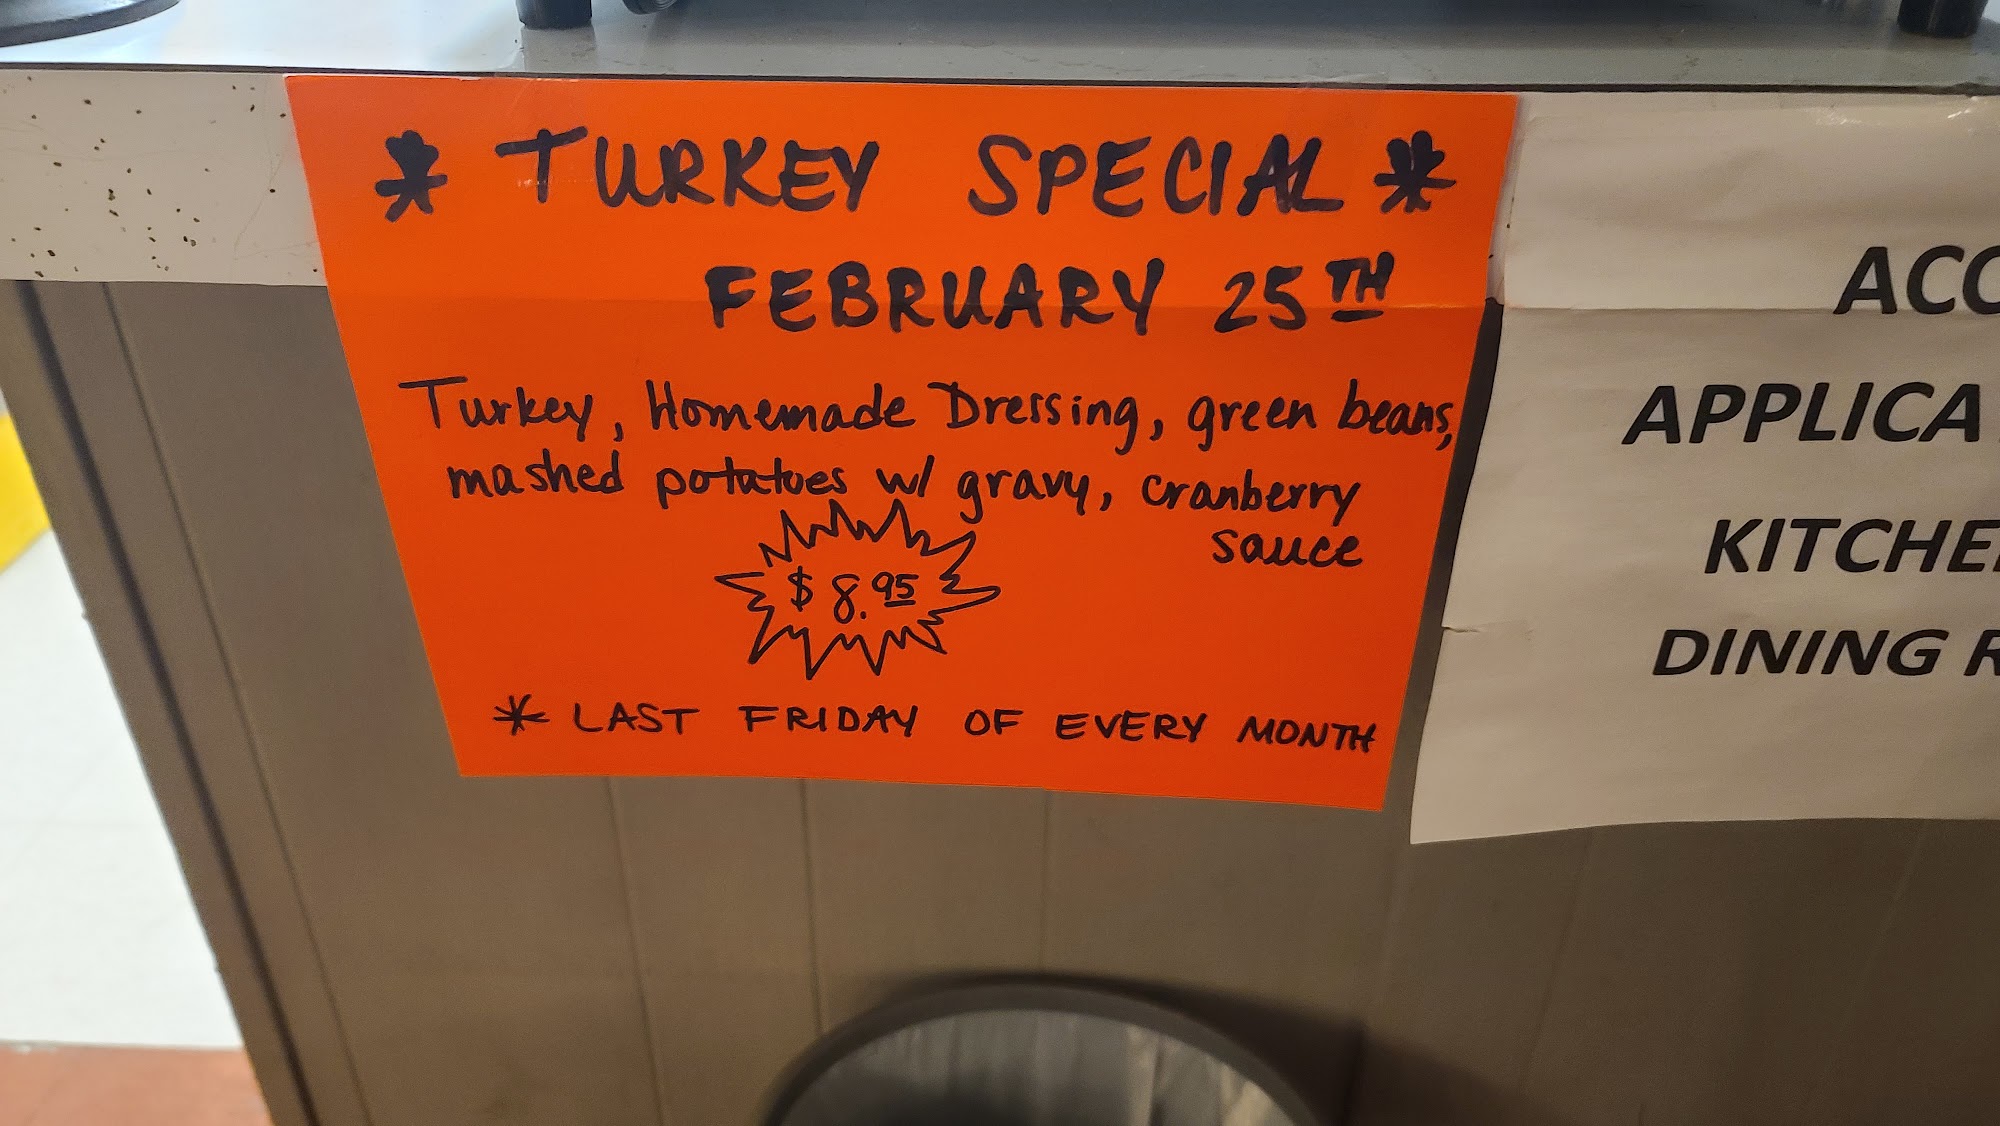 * TURKEY SPECIAL *
FEBRUARY 25TH
Turkey, Homemade Dressing, green beans,
mashed potatoes w/ gravy, cranberry
sauce
$8.95
* LAST FRIDAY OF EVERY MONTH
ACC
APPLICA
KITCHE
DINING R